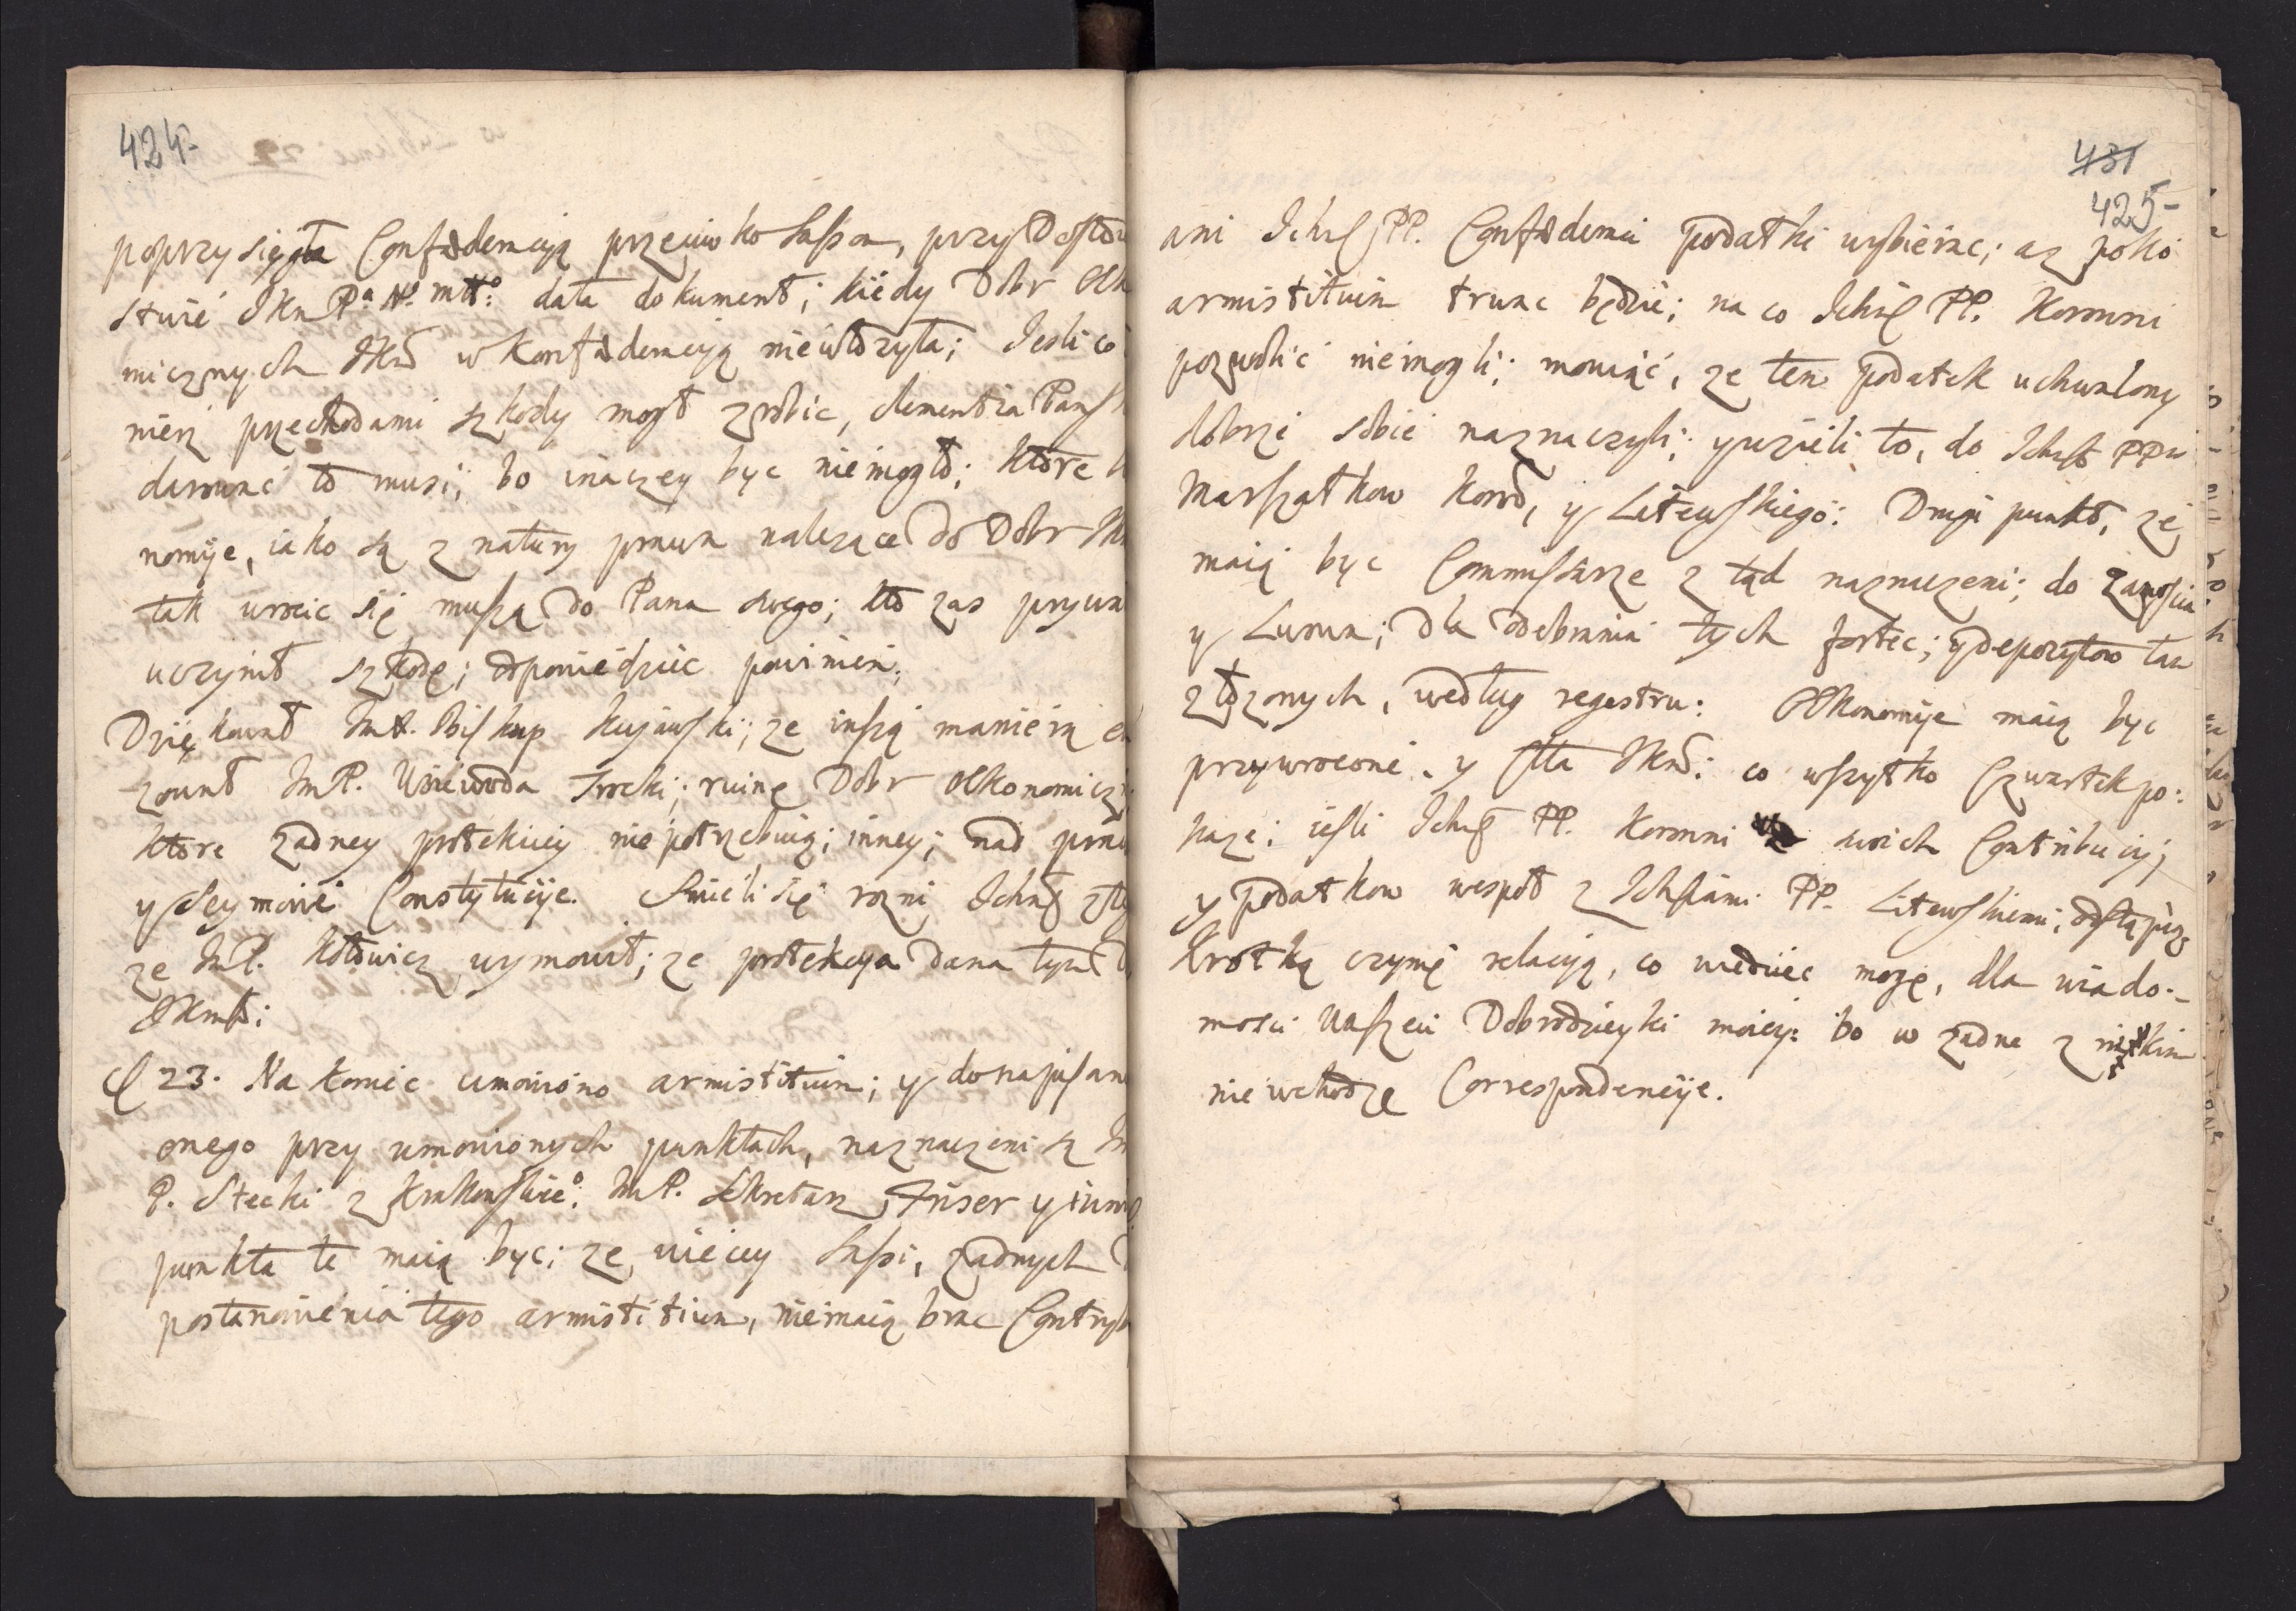 424
poprzysięgła Confæderacyą przeciwko Sasom, przy Dosto
stwie JKn Pa No mtto: dała dokument; kiedy Dobr Œko
micznych JKM w Konfæderacyą niewłozyła; Jesli co
nierz przechodami szkody mogł zrobic, clementia Pansk
darowac to musi; bo inaczey byc niemogło; ktore
nomije, iako są z natury prawa nalezące do Dobr
tak wrocic się muszą do Pana swego; kto zas prywa
uczynił szkodę; odpowiedziec powinien;
Dziękował ImX. Biskup Kujawski; ze inszą manierą
zował ImP. Woiewoda Trocki; ruinę Dobr Œkonomicz
ktore zadney protekcyey niepotrzebuią; inney; nad praw
y Seymowe Constytucije. Smieli się rozni Ichmość
ze ImP. Kotowicz wymowił; ze protekcya dana tym
JKmsci:
D 23. Na koniec umowiono armistitium; y do napisan
onego przy umowionych punktach, naznaczeni są Im
P. Stecki z Krakowskieo: ImP. Sekretarz
punkta te maią byc; ze więcey Sasi, zadnych
postanowienia tego armistitium, niemaią brac Contryb
431
425
ani Ichmść PP. Confæderaci podatki wybierac; az poko
armistitium trwac będzie; na co Ichmść PP. Koronni
pozwolic niemogli; mowiąc, ze ten podatek uchwalony
dobrze sobie naznaczyli; y wzieli to, do Ichmść PPw
Marszałkow Koron, y Litewskiego: Drugi punkt, ze
maią byc Commissarze z tąd naznaczeni; do Zamoscia
y Lwowa; dla odebrania tych fortec; y depozytow tam
złozonych, według regestru: Œkonomije maią byc
przywrocone, y Stła JKM: co wszytko Czwartek po:
kaze; iesli Ichmść PP. Koronni swoich Contribucyj,
y podatkow wespoł z Ichmsciami PP. Litewskiemi; odstąpią
Krotką czynię relacyą, co wiedziec mogę, dla wiado:
mosci Waszeci Dobrodzieyki moiey: bo w zadne z nikim
niewchodzę Correspondencije.